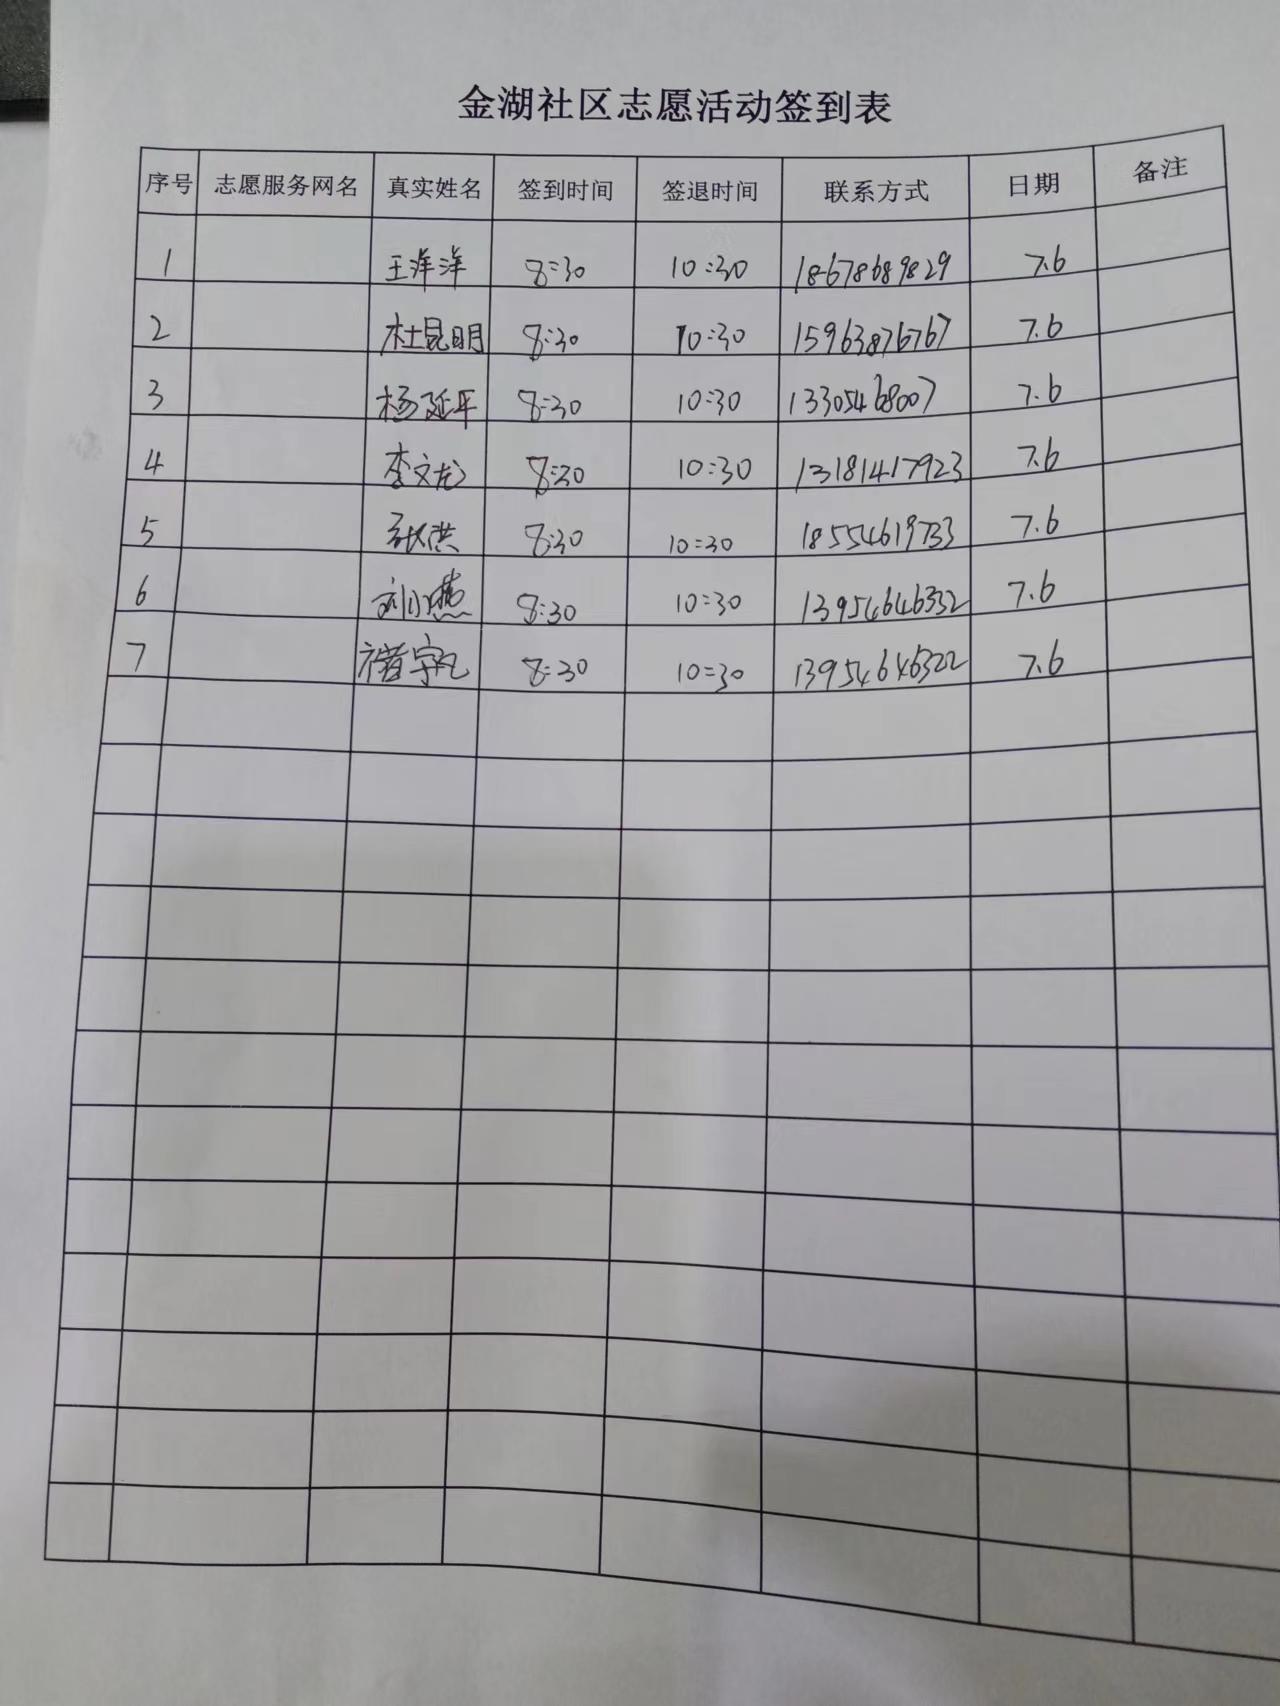 金湖社区志愿活动签到表
序号 志愿服务网名 真实姓名 签到时间 签退时间 联系方式 日期 备注
1 王洋洋 8:30 10:30 18678689829 7.6
2 杜昆明 8:30 10:30 15963876767 7.6
3 杨延平 8:30 10:30 13305468007 7.6
4 李文龙 8:30 10:30 13181417923 7.6
5 8:30 10:30 18554619733 7.6
6 刘小燕 8:30 10:30 13954646332 7.6
7 8:30 10:30 13954646322 7.6